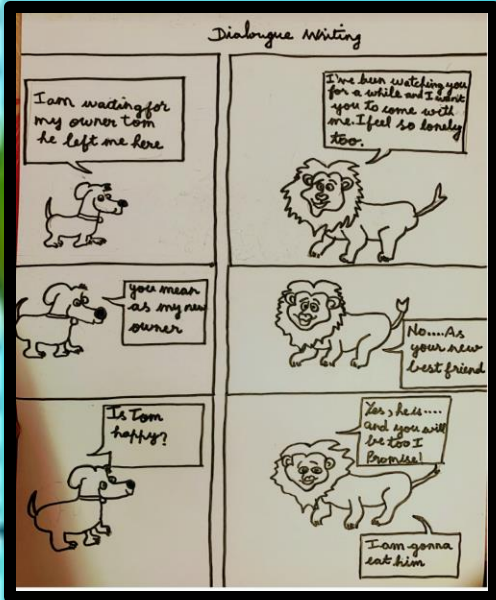 Dialougue Writing
I am waiting for
my owner tom
he left me here
I've been watching you
for a while and I want
you to come with
me. I feel so lonely
too.
you mean
as my new
owner
No....As
your new
best friend
Is Tom
happy?
Yes, he is....
and you will
be too I
Promise!
I am gonna
eat him